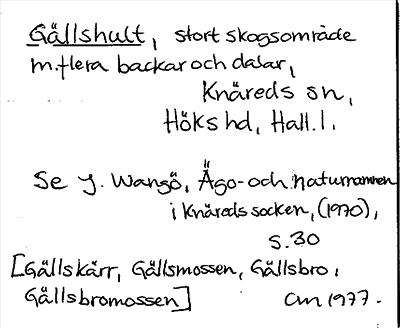 Gällshult, stort skogsområde
m. flera backar och dalar,
Knäreds sn,
Höks hd, Hall. l.
Se J. Wangö, Ägo- och naturnamnen
i Knäreds socken, (1970),
s. 30
[Gällskärr, Gällsmossen, Gällsbro,
Gällsbromossen]
AM 1977.